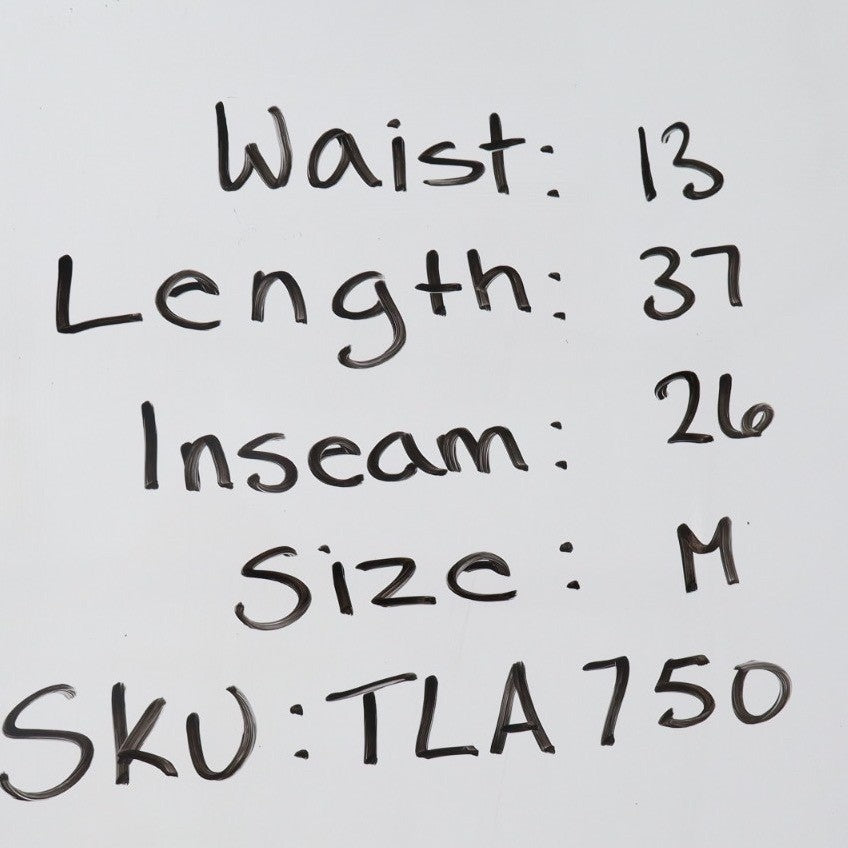 Waist: 13
Length: 37
Inseam: 26
Size: M
SKU: TLA 750